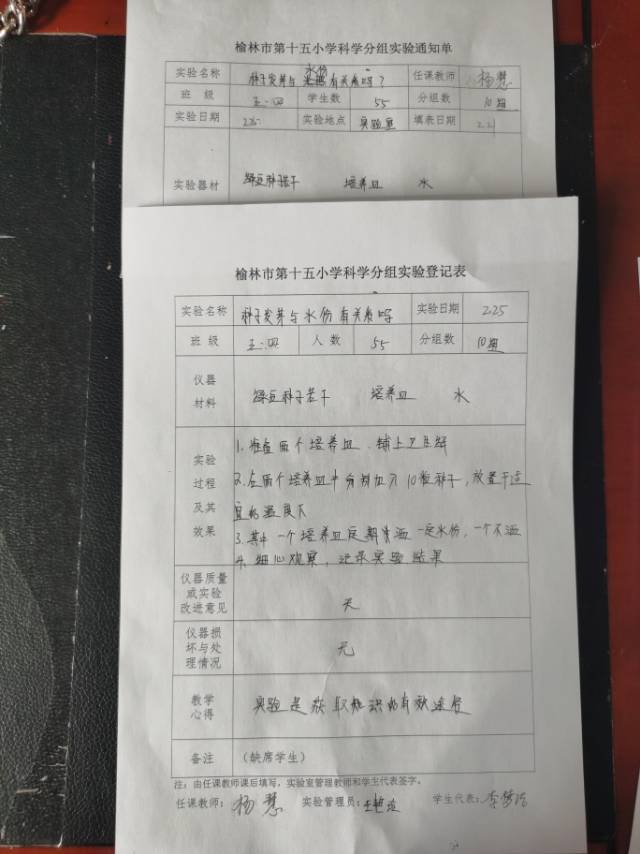 榆林市第十五小学科学分组实验通知单
水份
实验名称 种子发芽与 有关系吗? 任课教师 杨慧
班 级 五·四 学生数 55 分组数 10组
实验日期 2.25 实验地点 实验室 填表日期 2.21
实验器材 绿豆种子若干 培养皿 水
榆林市第十五小学科学分组实验登记表
实验名称 种子发芽与水份有关系吗 实验日期 2.25
班 级 五·四 人 数 55 分组数 10组
仪器
材料 绿豆种子若干 培养皿 水
实验
过程
及其
效果
1.准备两个培养皿,铺上卫生纸
2.在两个培养皿中分别加入10粒种子,放置于适
宜的温度下
3.其中一个培养皿定期喷洒一定水份,一个不洒
水.细心观察,记录实验结果
仪器质量
或实验
改进意见
无
仪器损
坏与处
理情况
无
教学
心得
实验是获取知识的有效途径
备注 (缺席学生)
注:由任课教师课后填写,实验室管理教师和学生代表签字。
任课教师: 杨慧 实验管理员: 学生代表: